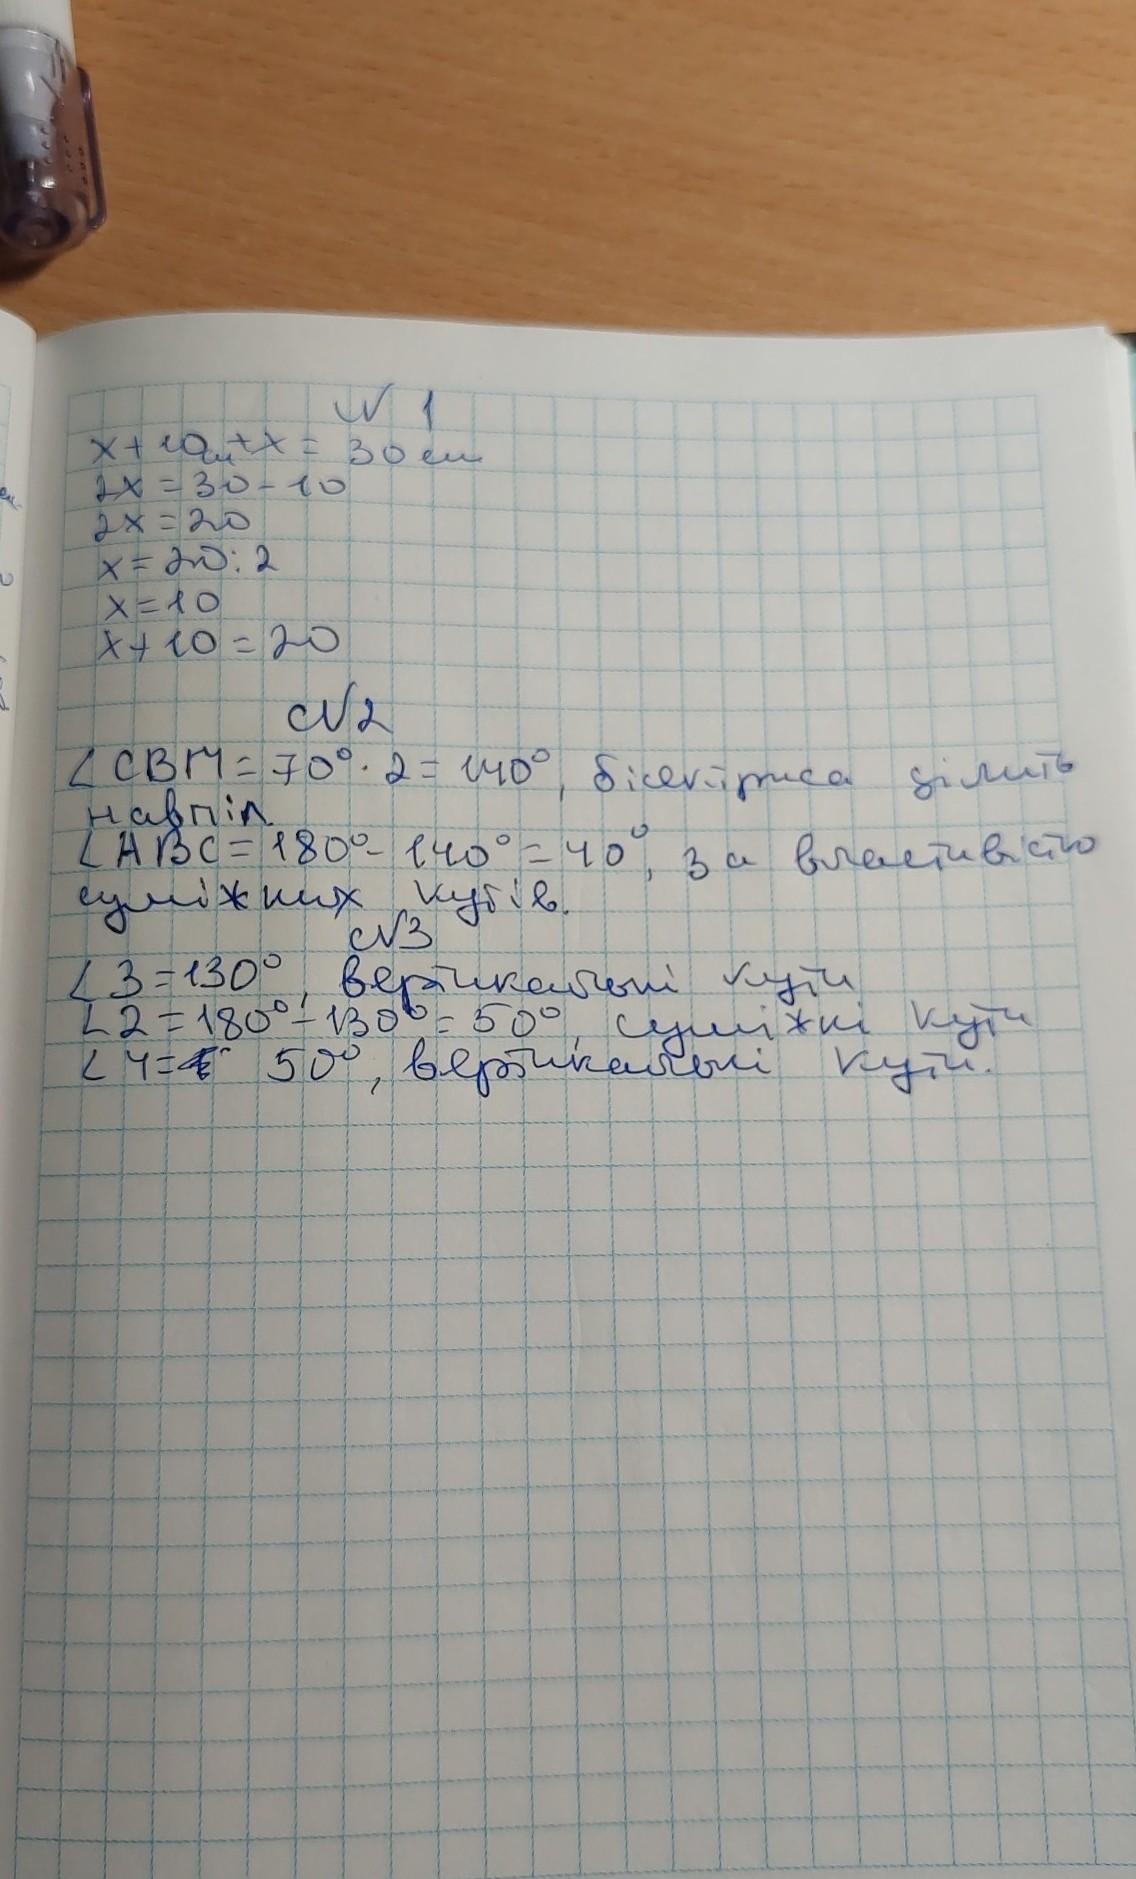 № 1
x + 10см + x = 30 см
2x = 30 - 10
2x = 20
x = 20 : 2
x = 10
x + 10 = 20
№2
∠CBM = 70° · 2 = 140°, бісектриса ділить
навпіл.
∠ABC = 180° - 140° = 40°, за властивістю
суміжних кутів.
№3
∠3 = 130°, вертикальні кути
∠2 = 180° - 130° = 50°, суміжні кути
∠4 = 50°, вертикальні кути.